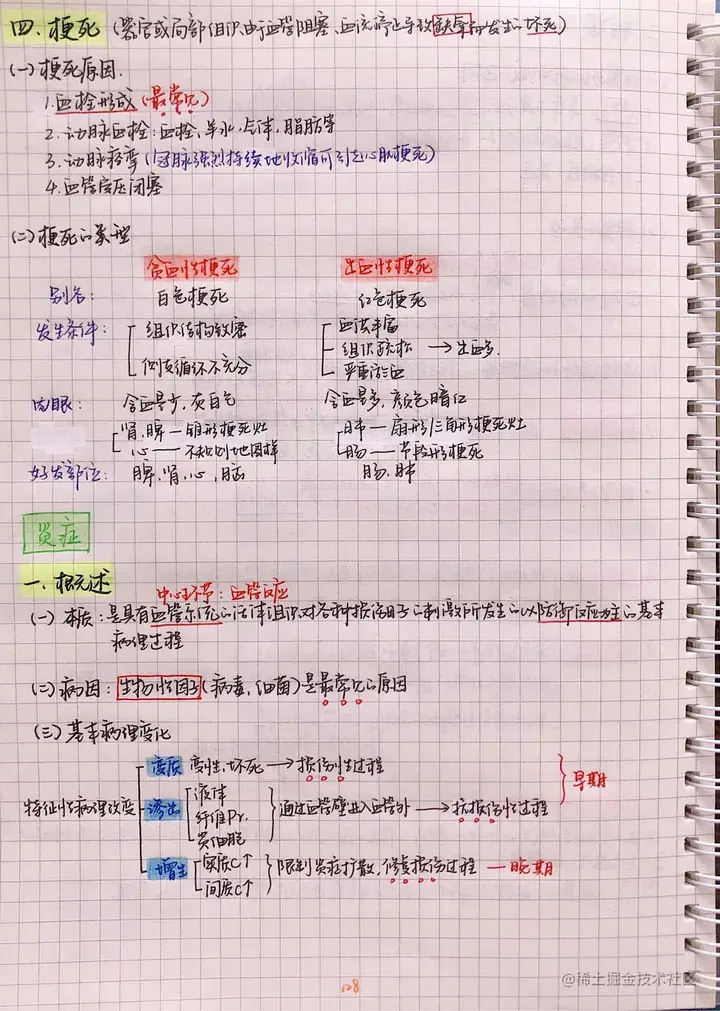 四.梗死(器官或局部组织由于血管阻塞、血流停止导致缺氧而发生的坏死)
(一)梗死原因.
1.血栓形成(最常见)
2.动脉血栓:血栓、羊水、气体、脂肪等
3.动脉痉挛(冠脉强烈持续地收缩可引起心肌梗死)
4.血管受压闭塞
(二)梗死的类型
贫血性梗死 出血性梗死
别名: 白色梗死 红色梗死
发生条件: 组织结构致密 血供丰富
组织疏松 → 出血多.
侧支循环不充分 严重淤血
肉眼: 含血量少,灰白色 含血量多,颜色暗红
肾.脾—锥形梗死灶 肺—扇形/三角形梗死灶
心——不规则地图样 肠——节段形梗死
好发部位: 脾、肾、心、脑 肠.肺
炎症
一.概述
中心环节:血管反应
(一)本质:是具有血管系统的活体组织对各种损伤因子的刺激所发生的以防御反应为主的基本
病理过程
(二)病因:生物性因子(病毒,细菌)是最常见的原因
(三)基本病理变化
变质 变性.坏死→损伤性过程
早期
特征性病理改变 渗出 液体
纤维Pr. 通过血管壁进入血管外→抗损伤性过程
炎细胞
增生 实质C↑ 限制炎症扩散,修复损伤过程—晚期
间质C↑
128
@稀土掘金技术社区